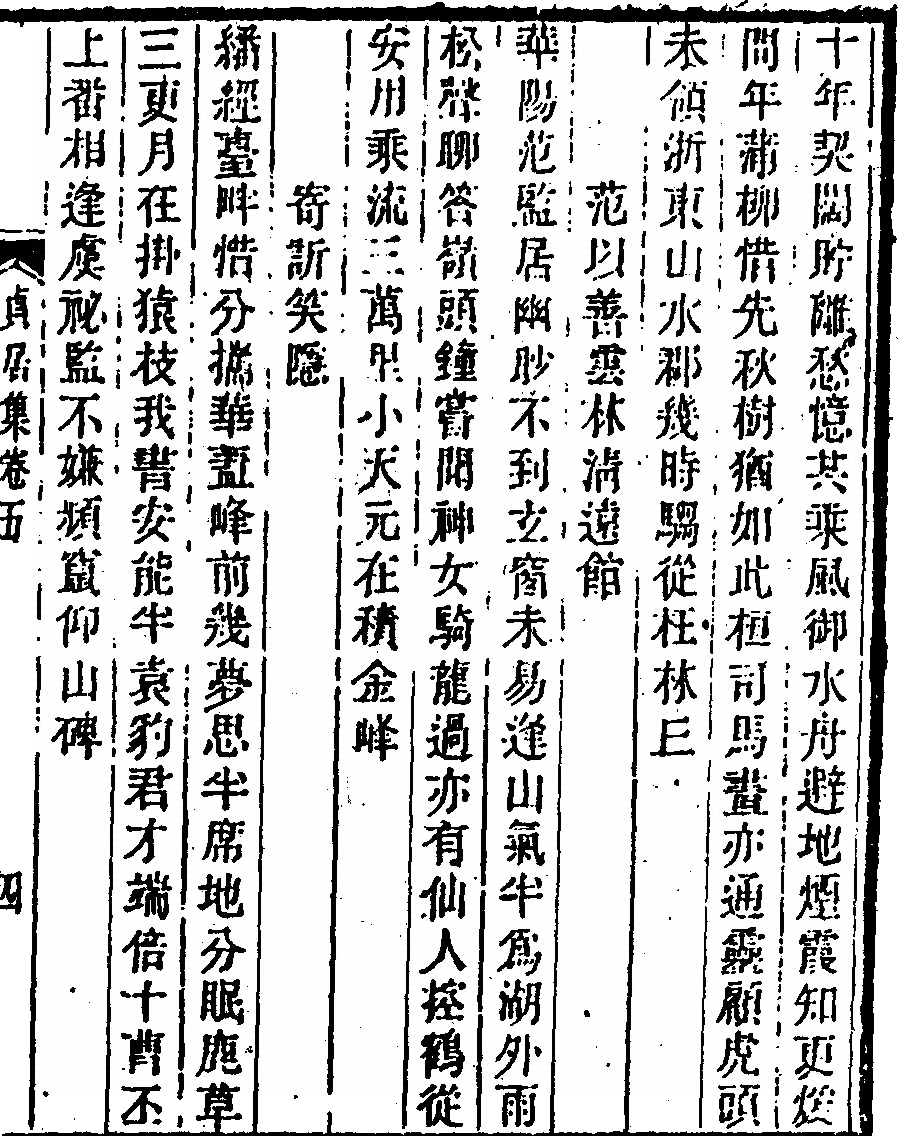 十年契闊貯離愁憶共乘風御水舟避地煙霞知更幾
問年蒲柳惜先秋樹猶如此桓司馬畫亦通靈顧虎頭
未領浙東山水郡幾時騶從枉林丘
范以善雲林淸遠館
華陽范監居幽眇不到立窗未易逢山氣半爲湖外雨
松聲聊答嶺頭鐘嘗聞神女騎龍過亦有仙人控鶴從
安用乘流三萬里小天元在積金峰
寄訢笑隱
繙經臺畔惜分攜華蓋峰前幾夢思半席地分眠鹿草
三更月在掛猿枝我書安能半袁豹君才端倍十曹丕
上番相逢虞祕監不嫌頻竄仰山碑
貞居集卷五
四